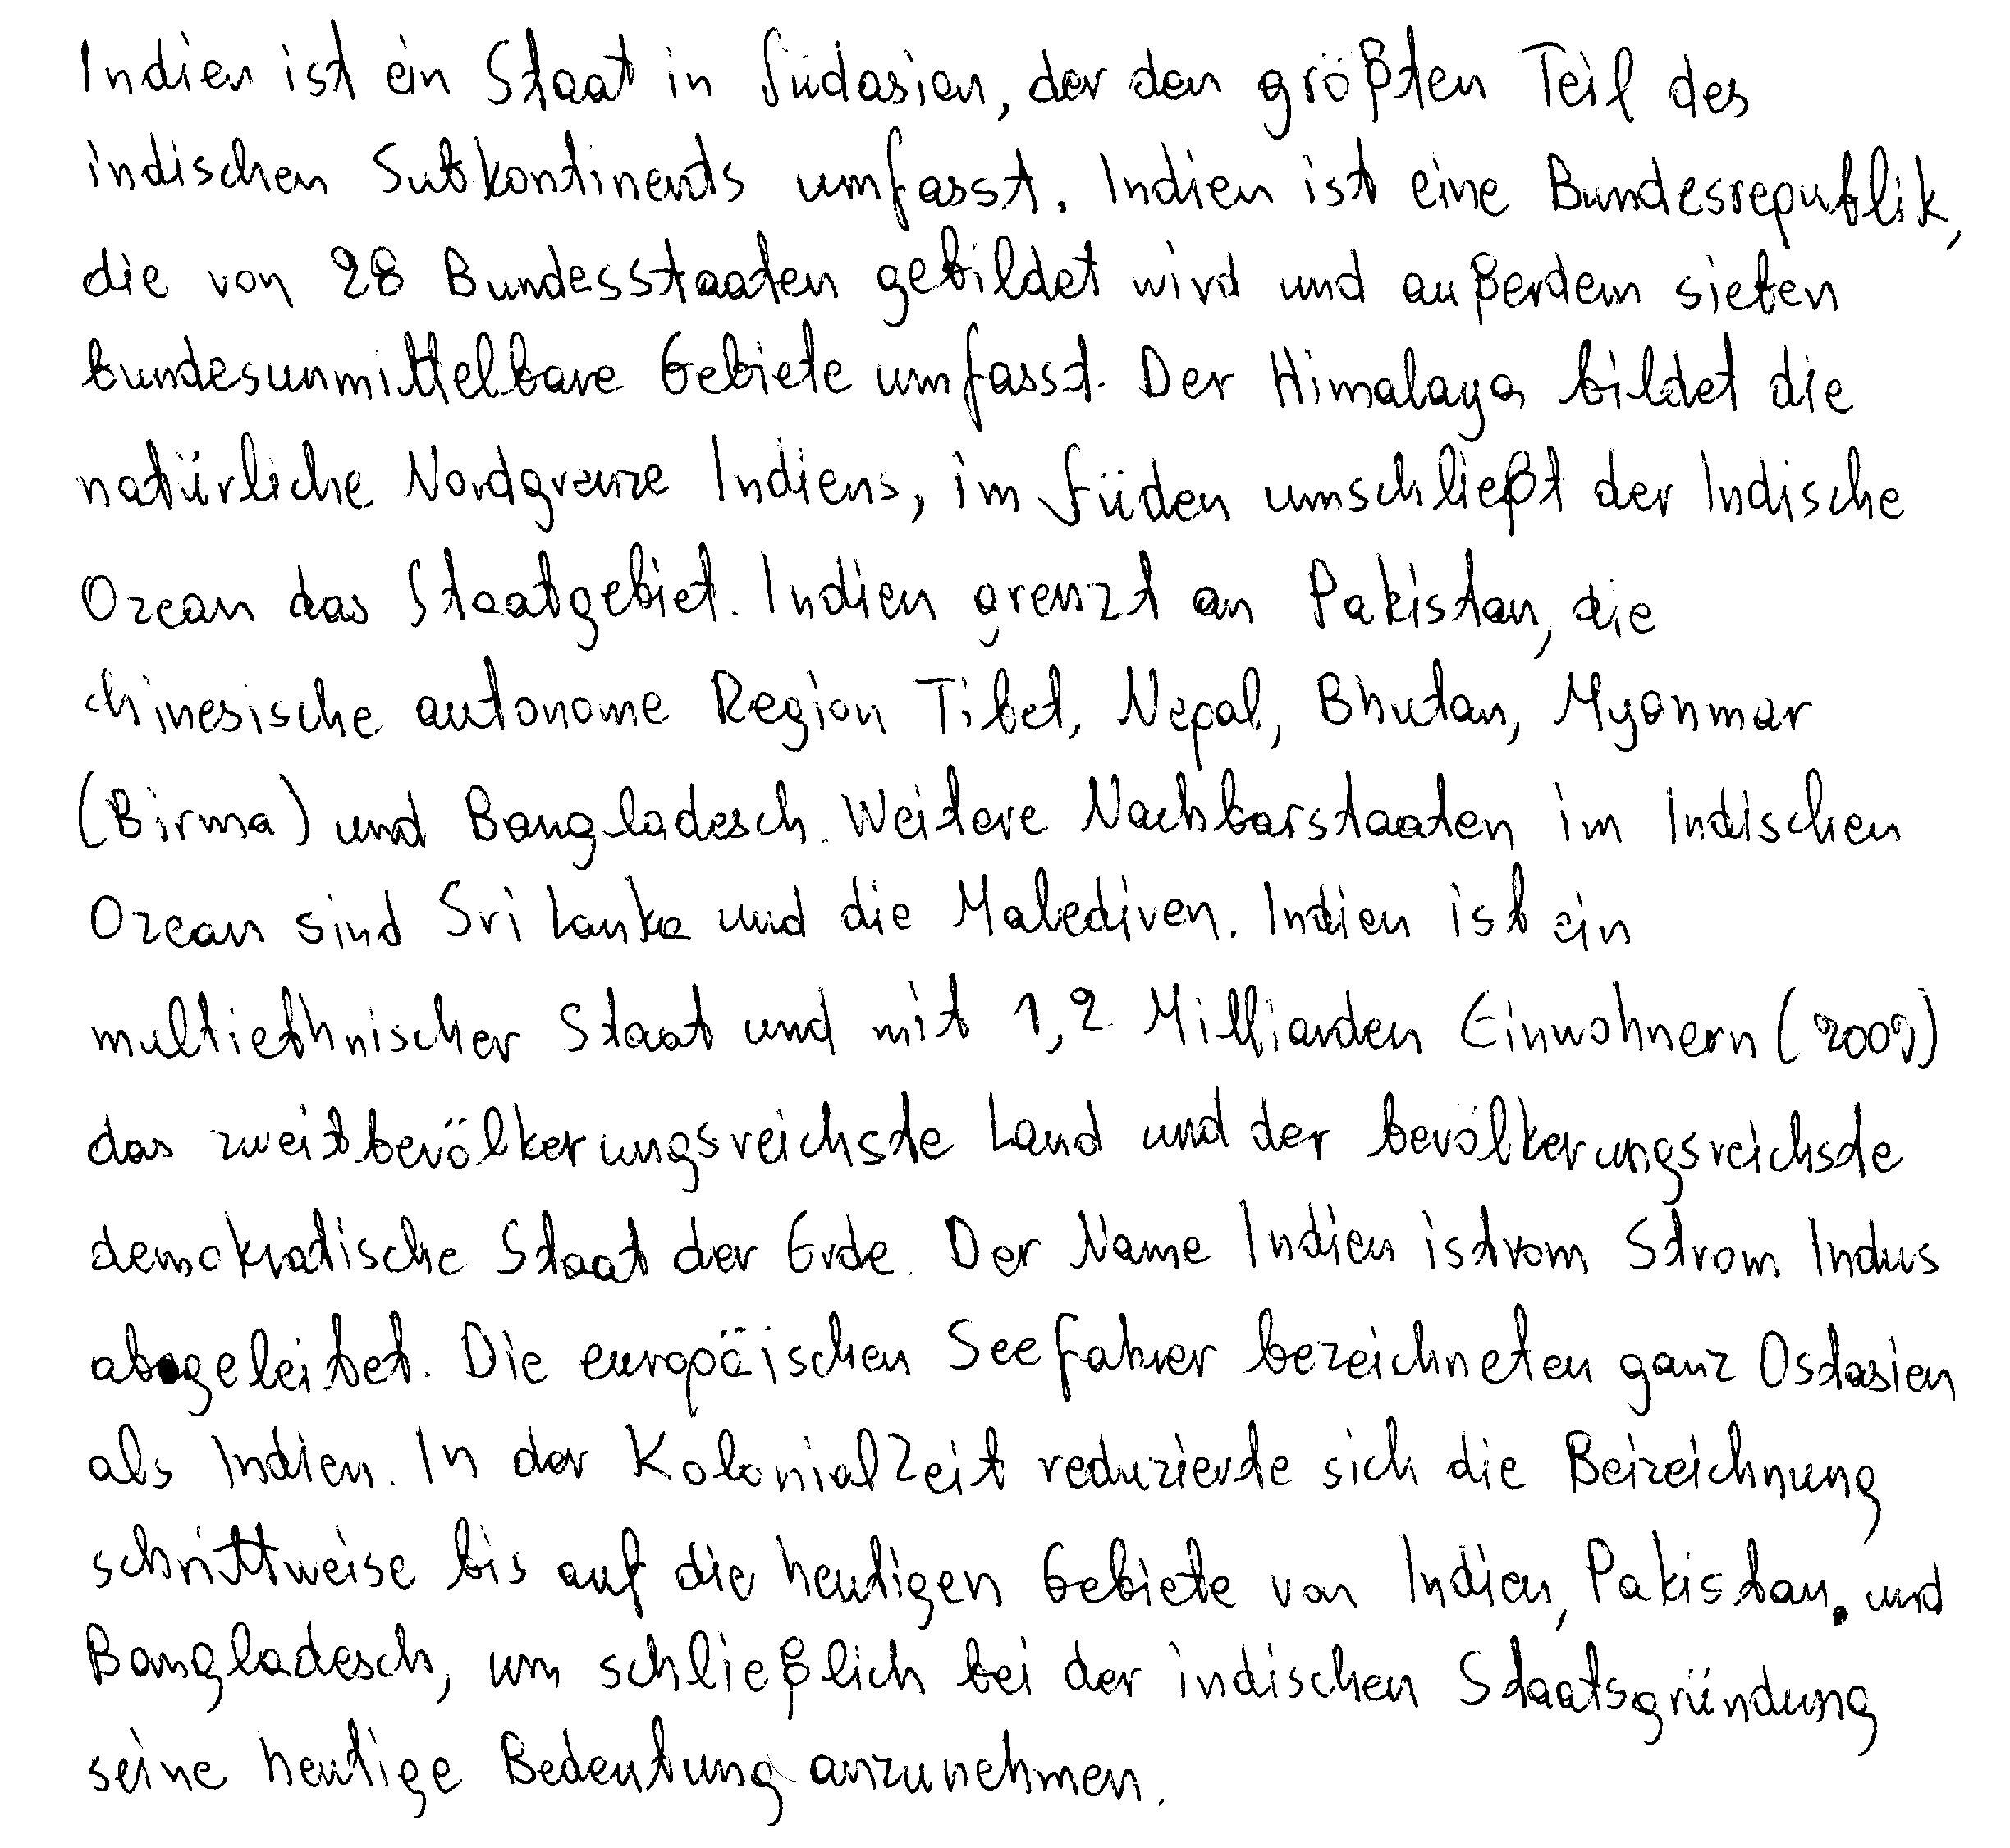 Indien ist ein Staat in Südasien, der den größten Teil des
indischen Subkontinents umfasst. Indien ist eine Bundesrepublik,
die von 28 Bundesstaaten gebildet wird und außerdem sieben
bundesunmittelbare Gebiete umfasst. Der Himalaya bildet die
natürliche Nordgrenze Indiens, im Süden umschließt der Indische
Ozean das Staatgebiet. Indien grenzt an Pakistan, die
chinesische autonome Region Tibet, Nepal, Bhutan, Myanmar
(Birma) und Bangladesch. Weitere Nachbarstaaten im Indischen
Ozean sind Sri Lanka und die Malediven. Indien ist ein
multiethnischer Staat und mit 1,2 Milliarden Einwohnern (2009)
das zweitbevölkerungsreichste Land und der bevölkerungsreichste
demokratische Staat der Erde. Der Name Indien ist vom Strom Indus
abgeleitet. Die europäischen Seefahrer bezeichneten ganz Ostasien
als Indien. In der Kolonialzeit reduzierte sich die Beizeichnung
schrittweise bis auf die heutigen Gebiete von Indien, Pakistan. und
Bangladesch, um schließlich bei der indischen Staatsgründung
seine heutige Bedeutung anzunehmen.